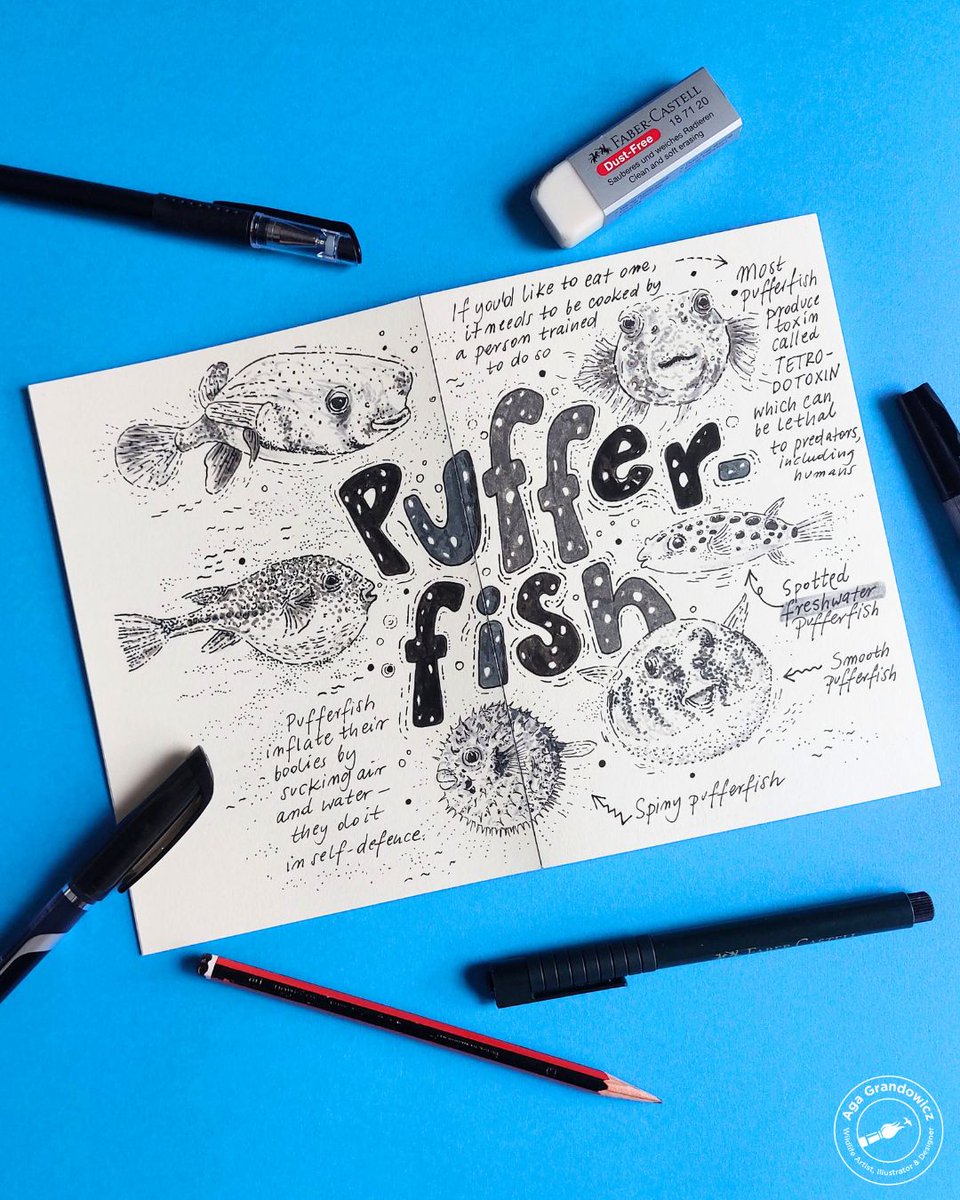 FABER-CASTELL
Dust-Free 18 71 20
Sauberes und weiches Radieren
Clean and soft erasing
If you'd like to eat one,
it needs to be cooked by
a person trained
to do so
Most
pufferfish
produce
toxin
called
TETRO-
DOTOXIN
which can
be lethal
to predators,
including
humans
Puffer-
fish
Spotted
freshwater
pufferfish
Smooth
pufferfish
Spiny pufferfish
Pufferfish
inflate their
bodies by
sucking air
and water –
they do it
in self-defence.
FABER-CASTELL
Aga Grandowicz
Wildlife Artist, Illustrator & Designer